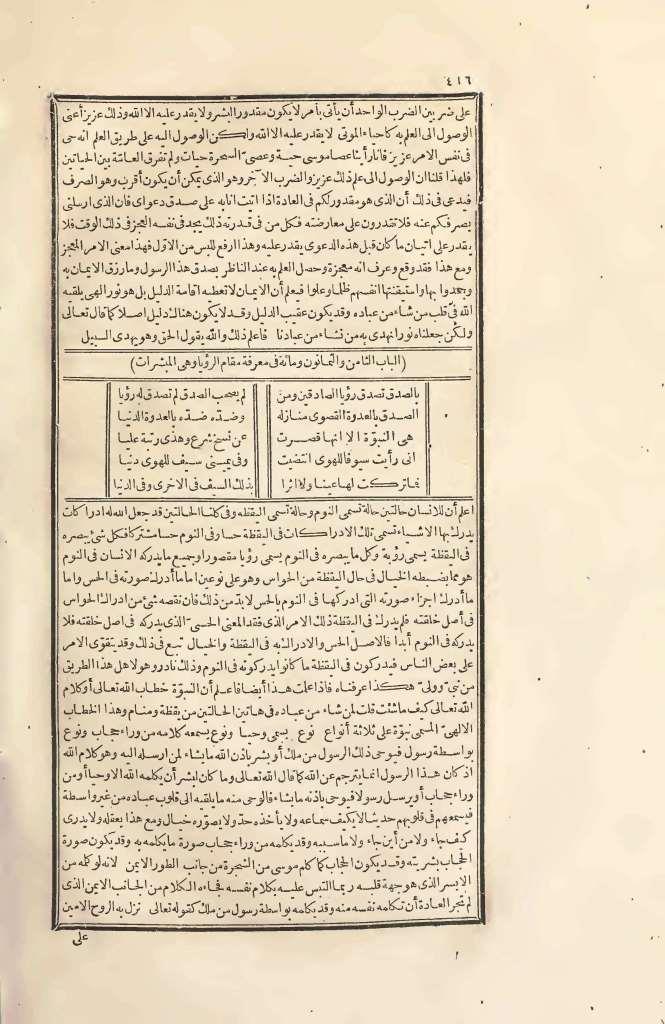 ٤١٦
على ضربين الضرب الواحد أن يأتى بأمر لا يكون مقدور البشر ولا يقدر عليه الا الله وذلك عزيز أعنى
الوصول الى العلم به كاحياء الموتى لا يقدر عليه الا الله ولكن الوصول اليه على طريق العلم انه حى
فى نفس الامر عزيز فانا رأينا عصا موسى حية وعصى السحرة حيات ولم تفرق العامّة بين الحياتين
فلهذا قلنا ان الوصول الى علم ذلك عزيز والضرب الآخر وهو الذى يمكن أن يكون أقرب وهو الصرف
فيدعى فى ذلك أن الذى هو مقدور لكم فى العادة اذا اتيت انا به على صدق دعواى فان الذى ارسلنى
يصرفكم عنه فلا تقدرون على معارضته فكل من فى قدرته ذلك يجد فى نفسه العجز فى ذلك الوقت فلا
يقدر على اتيان ما كان قبل هذه الدعوى يقدر عليه وهذا ارفع للبس من الاوّل فهذا معنى الامر المعجز
ومع هذا فقد وقع وعرف انه معجزة وحصل العلم به عند الناظر بصدق هذا الرسول وما رزق الايمان به
وجحدوا بها واستيقنتها انفسهم ظلما وعلوا فيعلم أن الايمان لا تعطيه اقامة الدليل بل هو نور الهى يلقيه
الله فى قلب من شاء من عباده وقد يكون عقيب الدليل وقد لا يكون هنالك دليل اصلا كما قال تعالى
ولكن جعلناه نورا نهدى به من نشاء من عبادنا فاعلم ذلك والله يقول الحق وهو يهدى السبيل
(الباب الثامن والثمانون ومائة فى معرفة مقام الرؤيا وهى المبشرات)
بالصدق تصدق رؤيا الصادقين ومن لم يصحب الصدق لم تصدق له رؤيا
الصدق بالعدوة القصوى منازله وضدّه ضدّه بالعدوة الدنيا
هى النبوّة الا انها قصرت عن نسخ شرع وهذى رتبة عليا
انى رأيت سيوفا للهوى انتضيت وفى يمينى سيف للهوى دنيا
فما تركت لها عينا ولا اثرا بذلك السيف فى الاخرى وفى الدنيا
اعلم أن للانسان حالتين حالة تسمى النوم وحالة تسمى اليقظة وفى كلتا الحالتين قد جعل الله له ادراكات
يدرك بها الاشياء تسمى تلك الادراكات فى اليقظة حسا وفى النوم حسا مشتركا فكل شئ يبصره
فى اليقظة يسمى رؤية وكل ما يبصره فى النوم يسمى رؤيا مقصورا وجميع ما يدركه الانسان فى النوم
هو مما يضبطه الخيال فى حال اليقظة من الحواس وهو على نوعين اما ما أدرك صورته فى الحس واما
ما أدرك اجزاء صورته التى ادركها فى النوم بالحس لابدّ من ذلك فان نقصه شئ من ادراك الحواس
فى أصل خلقته فلم يدرك فى اليقظة ذلك الامر الذى فقد المعنى الحسى الذى يدركه فى اصل خلقته فلا
يدركه فى النوم أبدا فالاصل الحس والادراك به فى اليقظة والخيال تبع فى ذلك وقد يتقوّى الامر
على بعض الناس فيدركون فى اليقظة ما كانوا يدركونه فى النوم وذلك نادر وهو لاهل هذا الطريق
من نبى وولىّ هكذا عرفناه فاذا علمت هذا أيضا فاعلم أن النبوّة خطاب الله تعالى أو كلام
الله تعالى كيف ما شئت قلت لمن شاء من عباده فى هاتين الحالتين من يقظة ومنام وهذا الخطاب
الالهى المسمى نبوّة على ثلاثة أنواع نوع يسمى وحيا ونوع يسمعه كلامه من وراء حجاب ونوع
بواسطة رسول فيوحى ذلك الرسول من ملك أو بشر باذن الله ما يشاء لمن ارسله اليه وهو كلام الله
اذ كان هذا الرسول انما يترجم عن الله كما قال الله تعالى وما كان لبشر أن يكلمه الله الا وحيا أو من
وراء حجاب أو يرسل رسولا فيوحى باذنه ما يشاء فالوحى منه ما يلقيه الى قلوب عباده من غير واسطة
فيسمعهم فى قلوبهم حديثا لا يكيف سماعه ولا يأخذه حدّ ولا يصوّره خيال ومع هذا يعقله ولا يدرى
كيف جاء ولا من أين جاء ولا ما سببه وقد يكلمه من وراء حجاب صورة ما يكلمه به وقد يكون صورة
الحجاب بشريته وقد يكون الحجاب كما كلم موسى من الشجرة من جانب الطور الايمن لانه لو كلمه من
الايسر الذى هو جهة قلبه ربما التبس عليه بكلام نفسه فجاءه الكلام من الجانب الايمن الذى
لم تجر العادة أن تكلمه نفسه منه وقد يكلمه بواسطة رسول من ملك كقوله تعالى نزل به الروح الامين
على